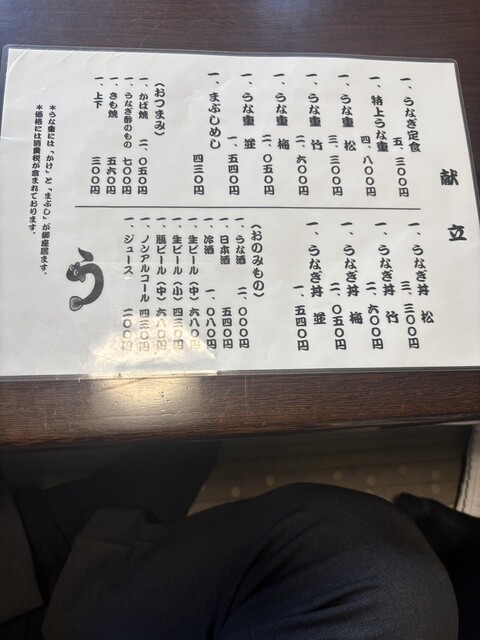 献立
一、うなぎ定食
五、三〇〇円
一、特上うな重
四、八〇〇円
一、うな重 松
三、三〇〇円
一、うな重 竹
二、六〇〇円
一、うな重 梅
二、〇五〇円
一、うな重 並
一、五四〇円
一、まぶしめし
四三〇円
(おつまみ)
一、かば焼
二、〇五〇円
一、うなぎ酢のもの
七〇〇円
一、きも焼
五六〇円
一、上下
三〇〇円
一、うなぎ丼 松
三、三〇〇円
一、うなぎ丼 竹
二、六〇〇円
一、うなぎ丼 梅
二、〇五〇円
一、うなぎ丼 並
一、五四〇円
(おのみもの)
一、うな酒 二、〇〇〇円
一、日本酒 五四〇円
一、冷酒 一、〇八〇円
一、生ビール(中)六八〇円
一、生ビール(小)四三〇円
一、瓶ビール(中)六八〇円
一、ノンアルコール 四三〇円
一、ジュース 二〇〇円
*うな重には「かけ」と「まぶし」が御座居ます。
*価格には消費税が含まれております。
う